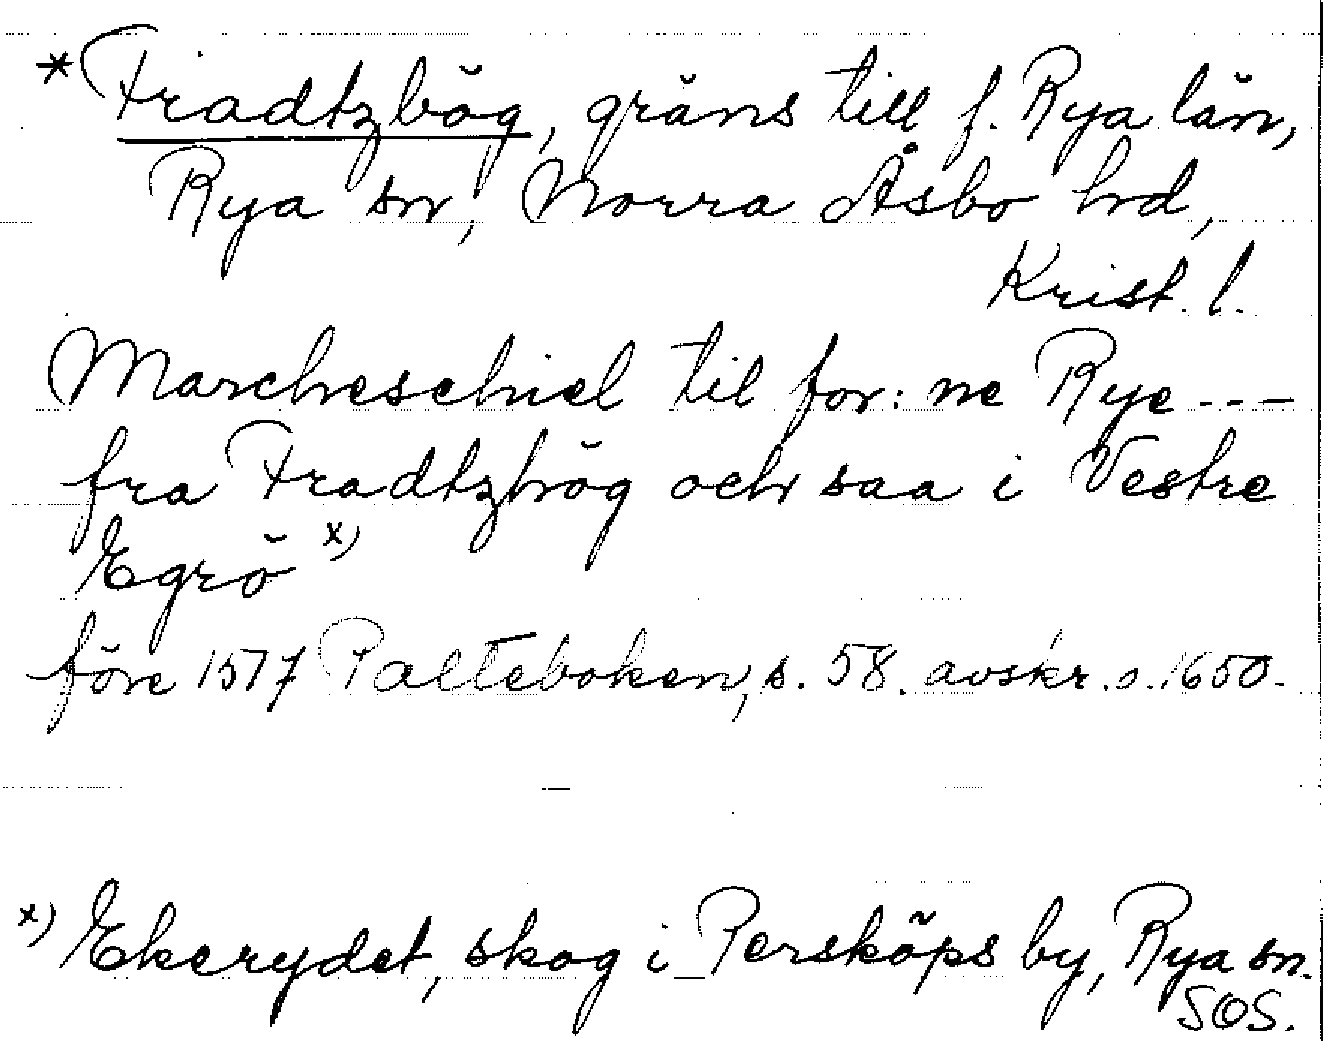 * Fradtzbög, gräns till f. Rya län,
Rya sn, Norra Åsbo hd,
Krist. l.
Marcheschiel til for: ne Rye ---
fra Fradtzhög och saa i Vestre
Egrö x)
före 1577 Palteboken, s. 58. avskr. o. 1650.
x) Ekerydet, skog i Persköps by, Rya sn.
SOS.